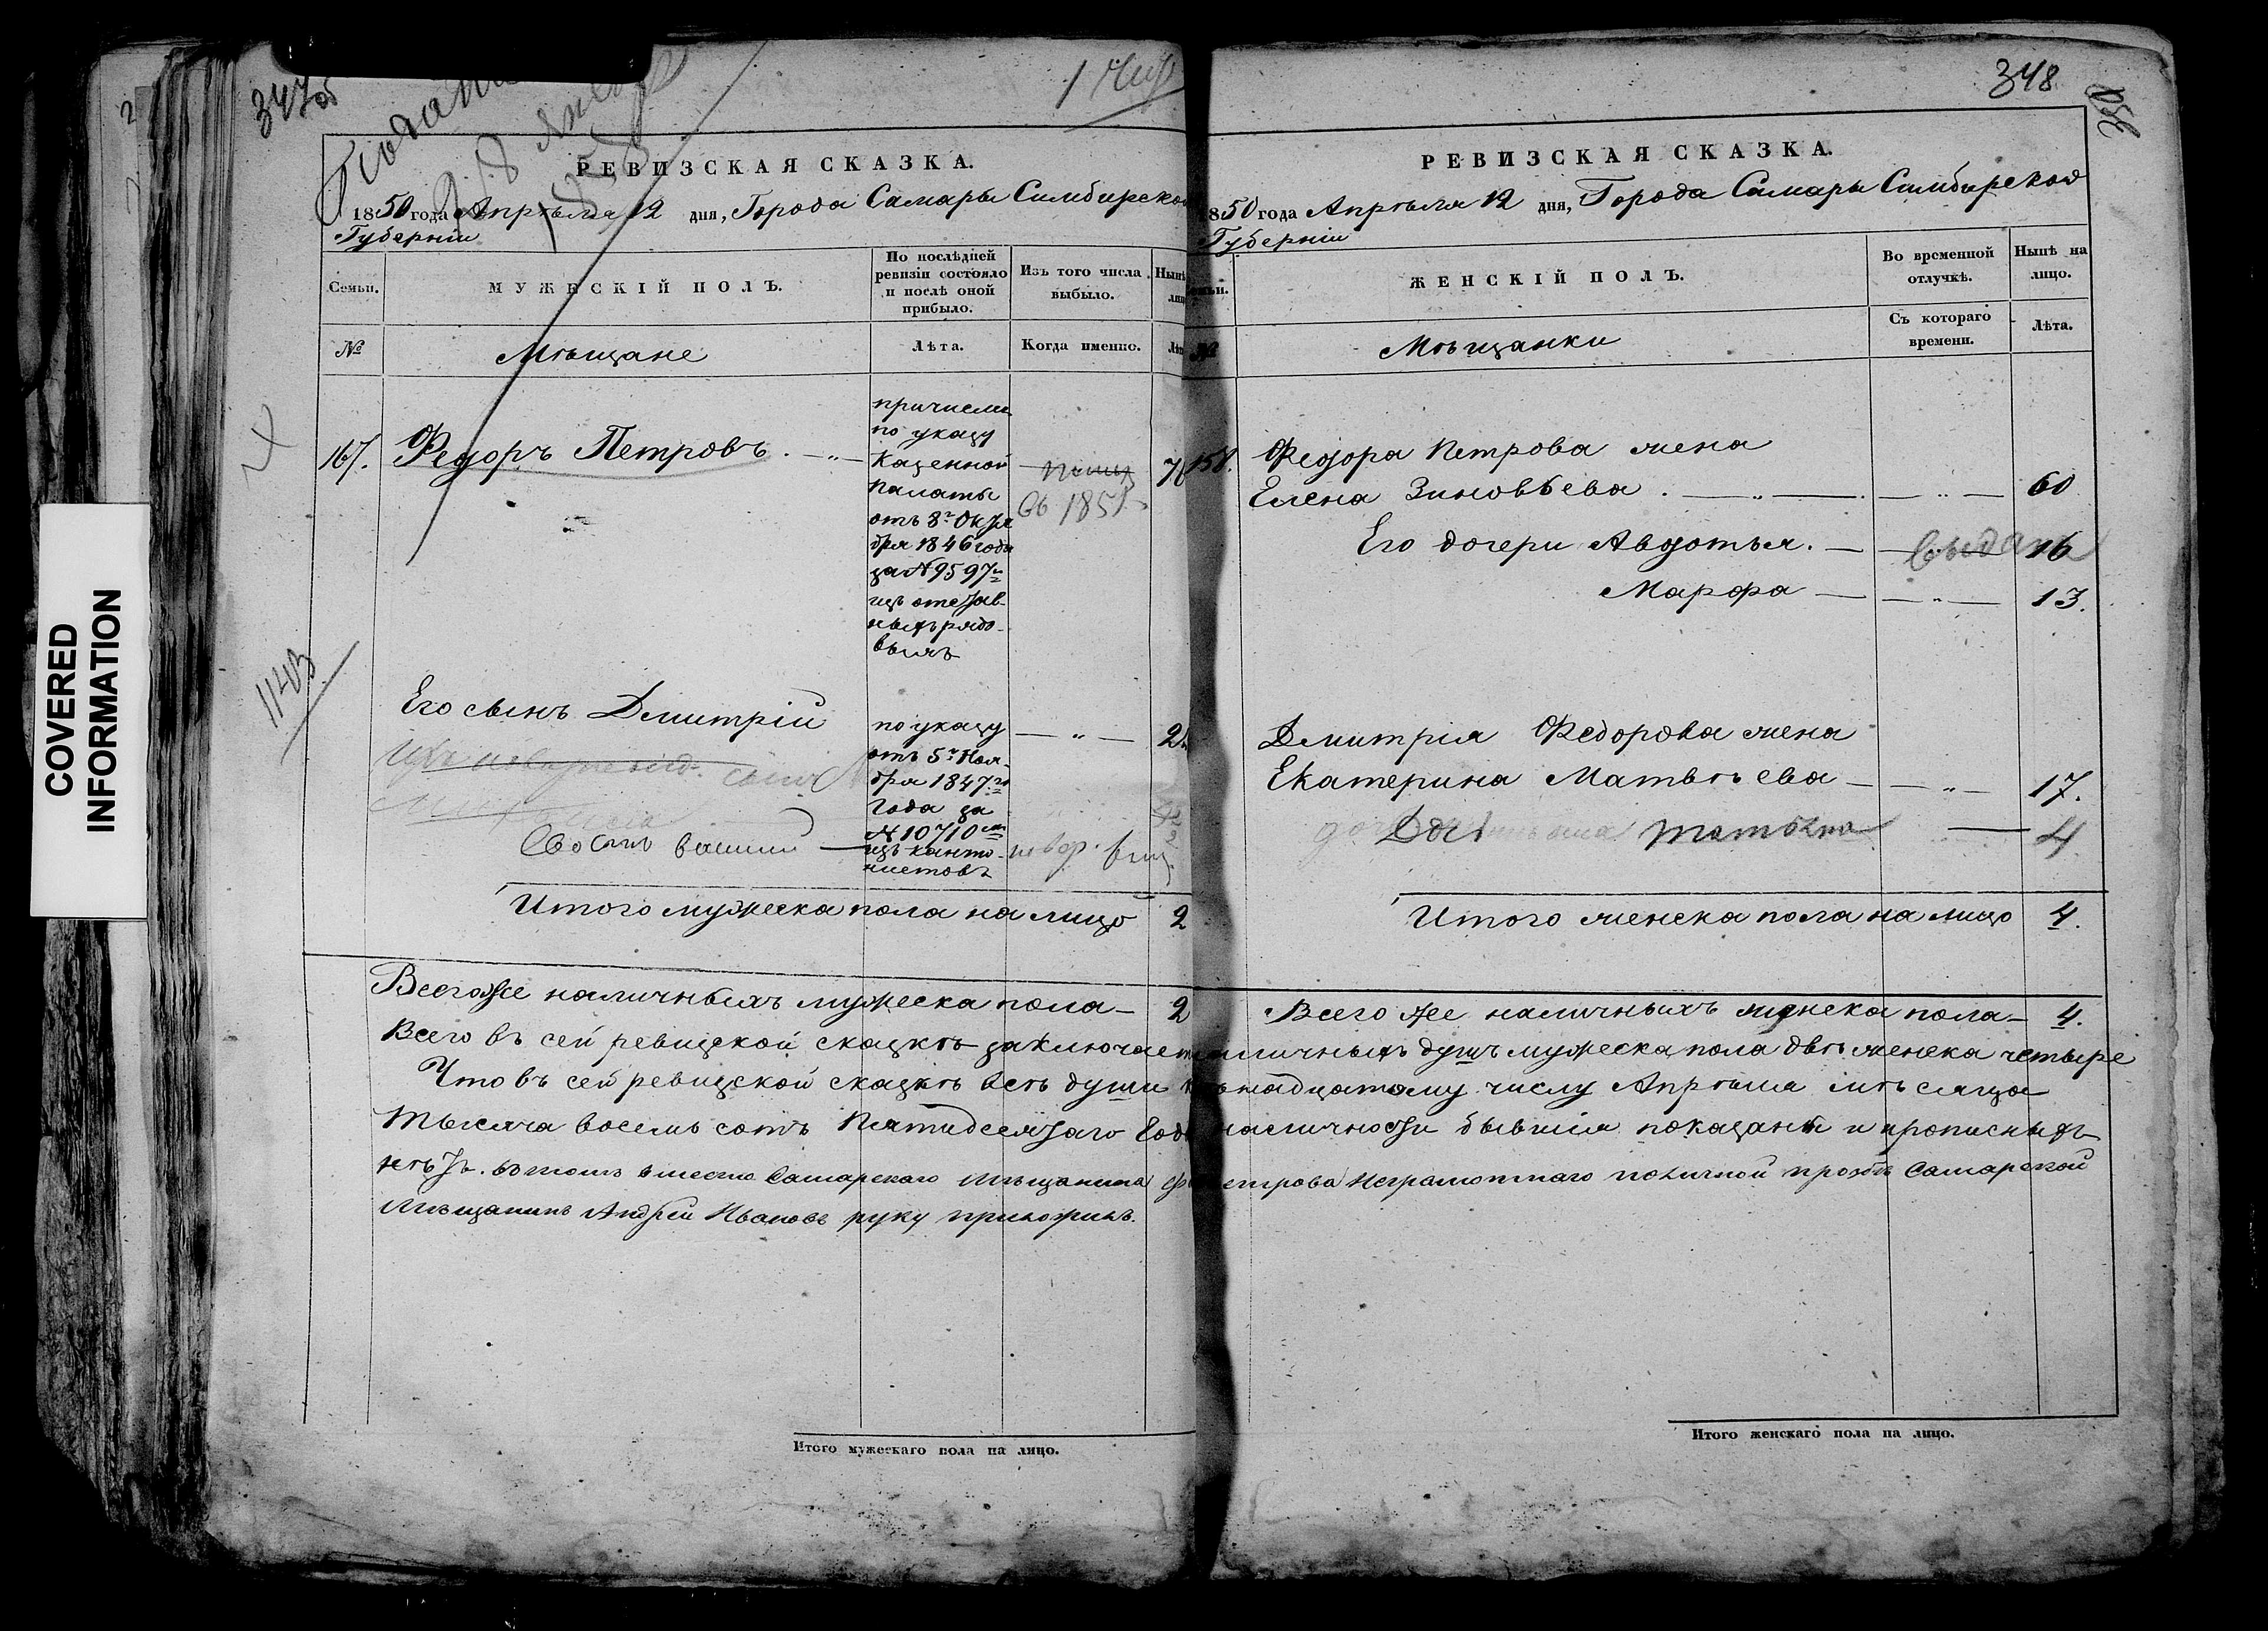 347 об
1
РЕВИЗСКАЯ СКАЗКА.
1850 года Апрѣля 12 дня, Города Самары Симбирской
Губернiи
Семьи.
МУЖЕСКIЙ ПОЛЪ.
По послѣдней ревизiи состояло и послѣ оной прибыло.
Изъ того числа выбыло.
№
Мѣщане
Лѣта.
Когда именно.
167.
Федоръ Петровъ.
причислен
по указу
Казенной
палаты
отъ 8го Октя
бря 1846 года
за №9597м
изъ отстав-
ныхъ рядо-
выхъ
въ 1851
1143
Его сынъ Дмитрiй
по указу
отъ 5го Ноя-
бря 1847го
года за
№10710мъ
изъ канто-
нистовъ
Итого мужеска пола на лицо 2
Всего же наличныхъ мужеска пола - 2
348
350
РЕВИЗСКАЯ СКАЗКА.
1850 года Апрѣля 12 дня, Города Самары Симбирской
Губернiи
ЖЕНСКIЙ ПОЛЪ.
Во временной отлучкѣ.
Нынѣ на лицо.
№
Мѣщанки
Съ котораго времени.
Лѣта.
Федора Петрова жена
Елена Зиновьева . 60
Его дочери Авдотья. выдана 16
Марфа 13.
Дмитрiя Федорова жена
Екатерина Матвѣева 17.
Татьяна 4
Итого женска пола на лицо 4.
Всего же наличныхъ женска пола - 4.
Всего въ сей ревизской сказкѣ заключается наличныхъ душъ мужеска пола двѣ женска четыре
Что въ сей ревизской сказкѣ всѣ души надцатому числу Апрѣля мѣсяца
тысяча восемь сотъ пятидесятаго года наличности бывшiя показаны и прописныхъ
нѣтъ. въ томъ вместо Самарскаго мѣщанина Петрова неграмотнаго по личной прозбе Самарской
мѣщанинъ Андрей Ивановъ руку приложилъ.
Итого мужескаго пола на лицо.
Итого женскаго пола на лицо.
COVERED
INFORMATION